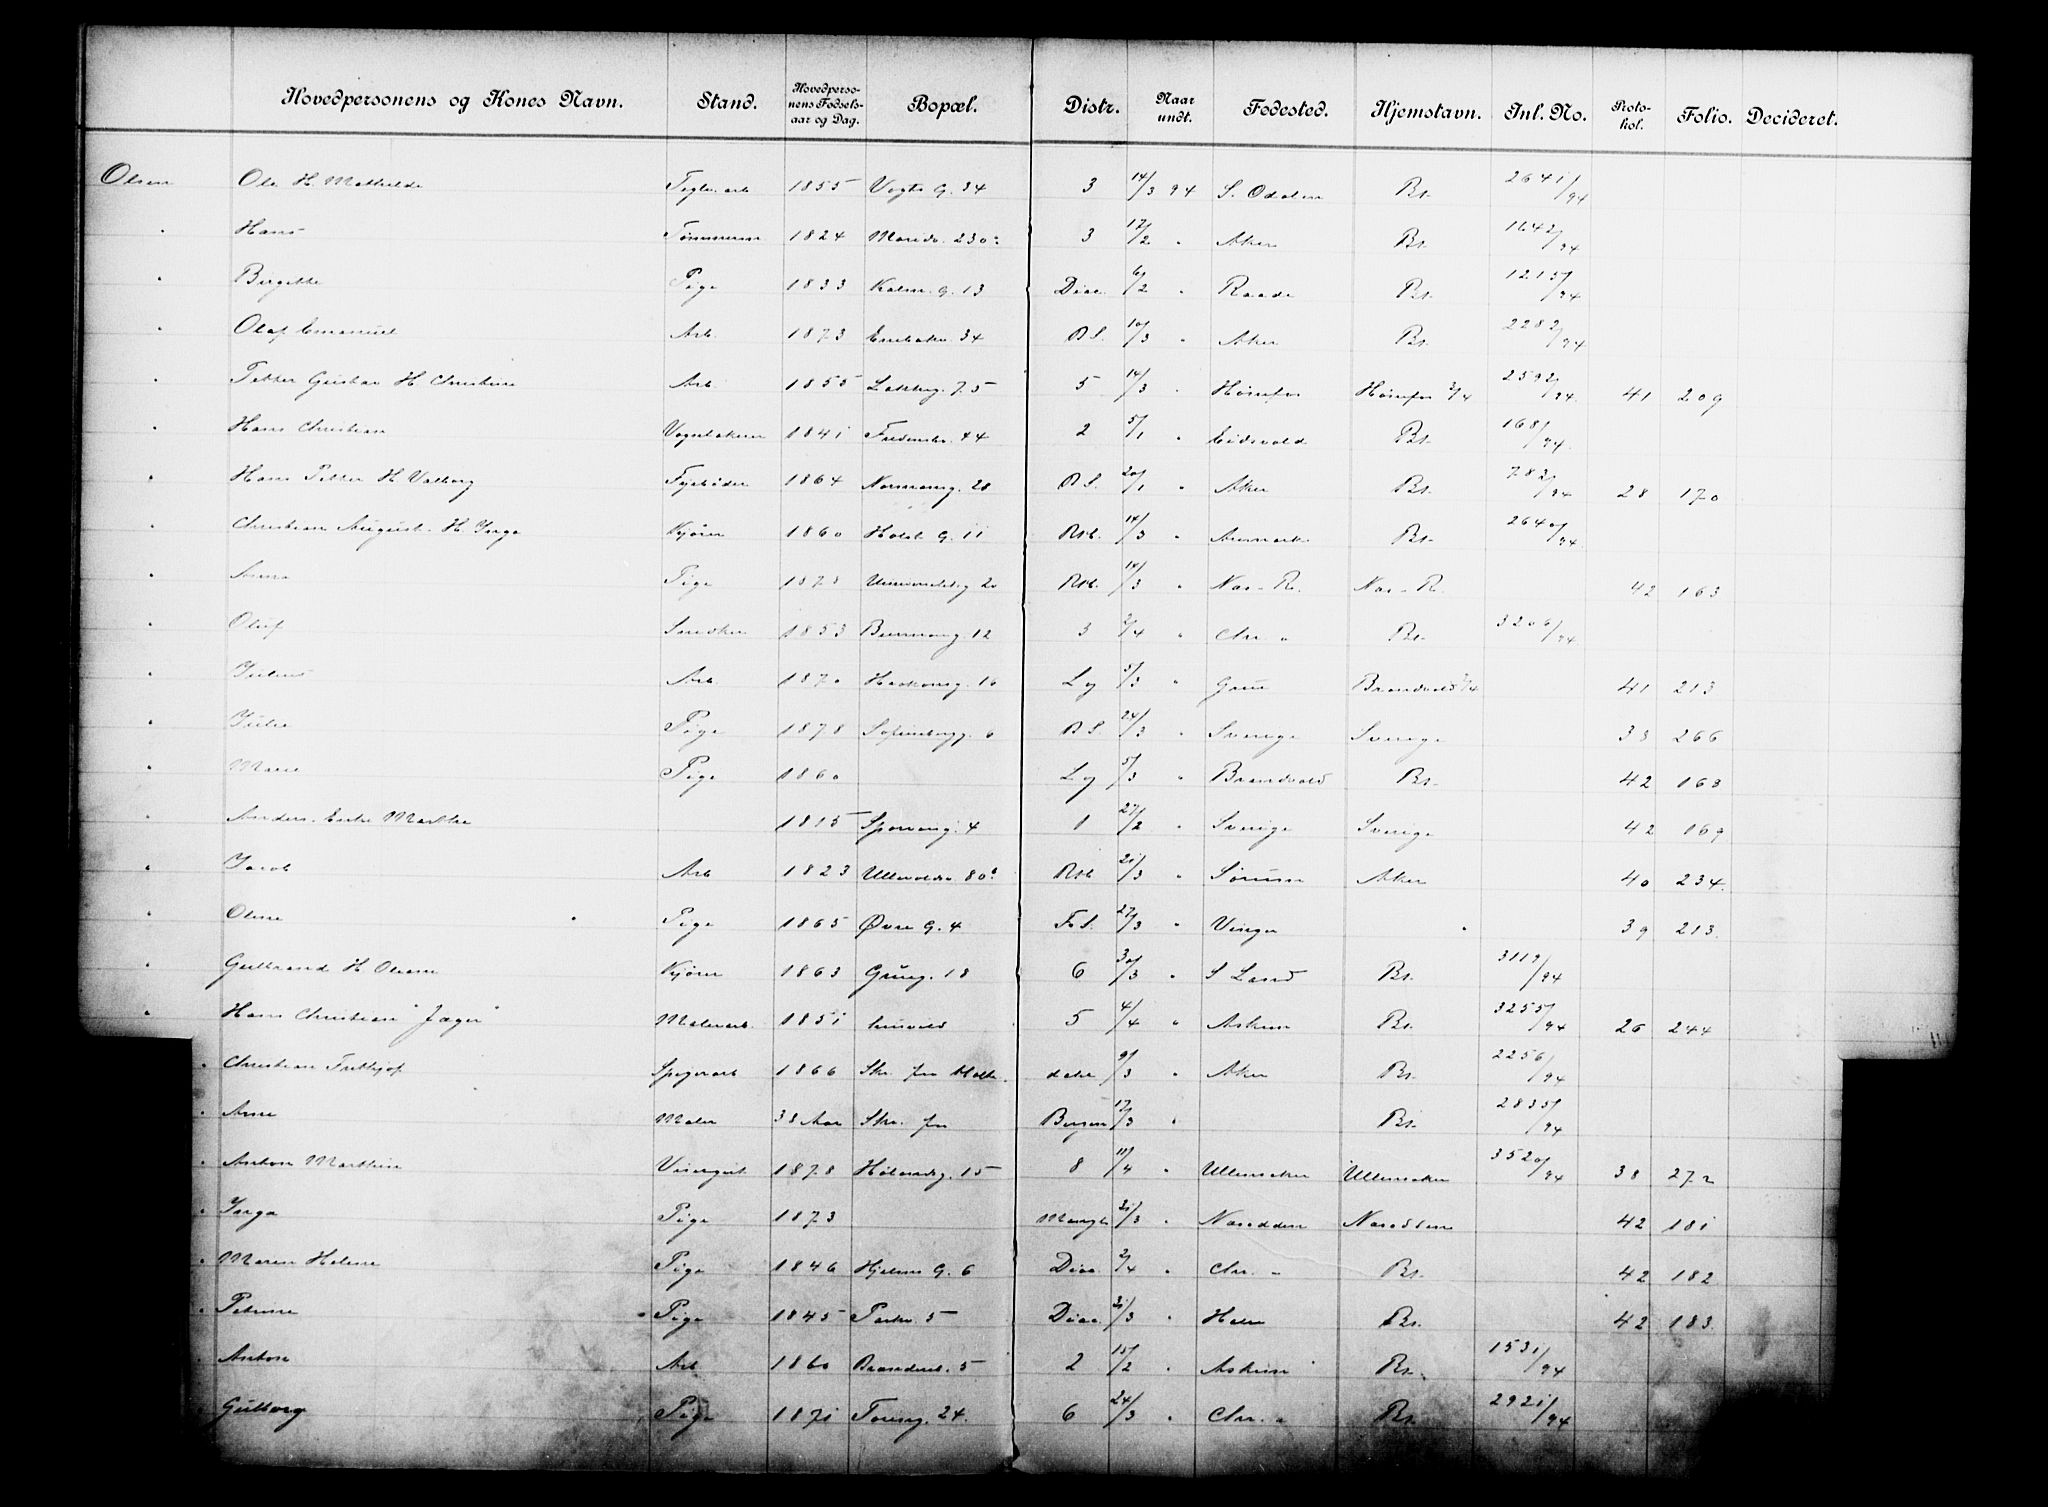 Hovedpersonens og Kones Navn. Stand. Hovedpersonens Fødselsaar og Dag. Bopæl. Distr. Naar undt. Fødested. Hjemstavn. Inl. No. Protokol. Folio. Decideret.
Olsen Ole H. Mathilde 1855 Vogts G. 34 3 14/3 94 S. Odalen Bt. 2641/94
" Hans 1824 3 17/2 " Aker Bt. 1642/94
" Birgitte Pige 1833 13 Diac. 6/2 " Raade Bt. 1215/94
" Olaf Emanuel Arb. 1873 34 B S. 10/3 " Aker Bt. 2282/94
" Petter Gustav H Christine Arb. 1855 Lakkeg. 75 5 14/3 " Hønefos Hønefos 3/4 2592/94 41 209
" Hans Christian 1841 44 2 5/1 " Eidsvold Bt. 168/94
" Hans Petter H Valborg Fyrbøder 1864 Normanng. 28 B S. 20/1 " Aker Bt. 782/94 28 170
" Christian August H. Inga Kjører 1860 Holst G. 11 Rh. 14/3 " Aremark Bt. 2640/94
" Pige 1873 20 Rh. 14/3 " Nas-R. Nas-R. 42 163
" Oluf Snedker 1853 12 3 2/4 " Chr. a Bt. 3206/94
" Julius Arb. 1870 Haakonsg. 16 Lg 5/3 " Grue Brandvold 3/4 41 213
" Julie Pige 1878 Sofienbergg. 6 B S. 24/3 " Sverige Sverige 38 266
" Marie Pige 1860 Lg 5/3 " Brandvold Bt. 42 163
" Anders. Enke Marthe 1815 4 1 27/2 " Sverige Sverige 42 169
" Jacob Arb 1823 Ullevoldsv. 80b Rh 21/3 " Sørum Aker 40 234.
" Oline Pige 1865 Øvre G. 4 F.S. 27/3 " Vinger " 39 213.
" Gulbrand H. Oleane Kjører 1863 Grüng. 18 6 30/3 " S Land Bt. 3119/94
" Hans Christian "Jæger" Malerarb. 1851 husvild 5 4/4 " Askim Bt. 3255/94 26 244
" Christian Frithjof Spigerarb 1866 Skr. fra Holte- dalen 9/3 " Aker Bt. 2256/94
" Arne Maler 38 Aar Skr. fra Bergen 17/3 " Bt. 2835/94
" Anton Marthin Visergut 1878 15 8 11/4 " Ullensaker Ullensaker 3520/94 38 272
" Inga Pige 1873 21/3 " Nasodden Nasodden 42 181
" Maren Helene Pige 1846 Hjelms G. 6 Diac. 2/4 " Chr. a Bt. 42 182
" Petrine Pige 1845 Parkv. 5 Diac. 31/3 " Bt. 42 183.
" Anton Arb 1860 5 2 15/2 " Askim Bt. 1531/94
" Gulborg Pige 1871 Toreng. 24. 6 24/3 " Chr. a Bt. 2921/94